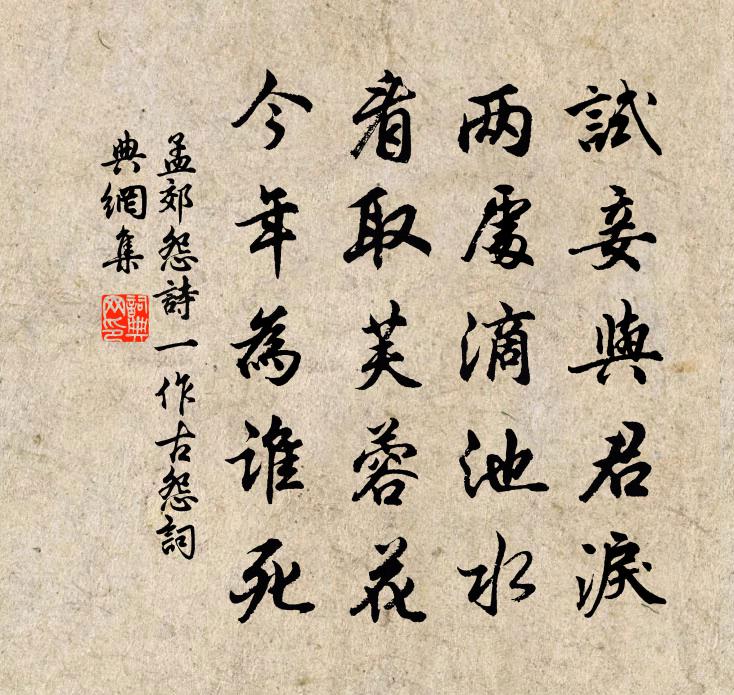 試妾與君淚
两處滴池水
看取芙蓉花
今年為誰死
孟郊怨詩一作古怨詞
典網集
詞典
网印